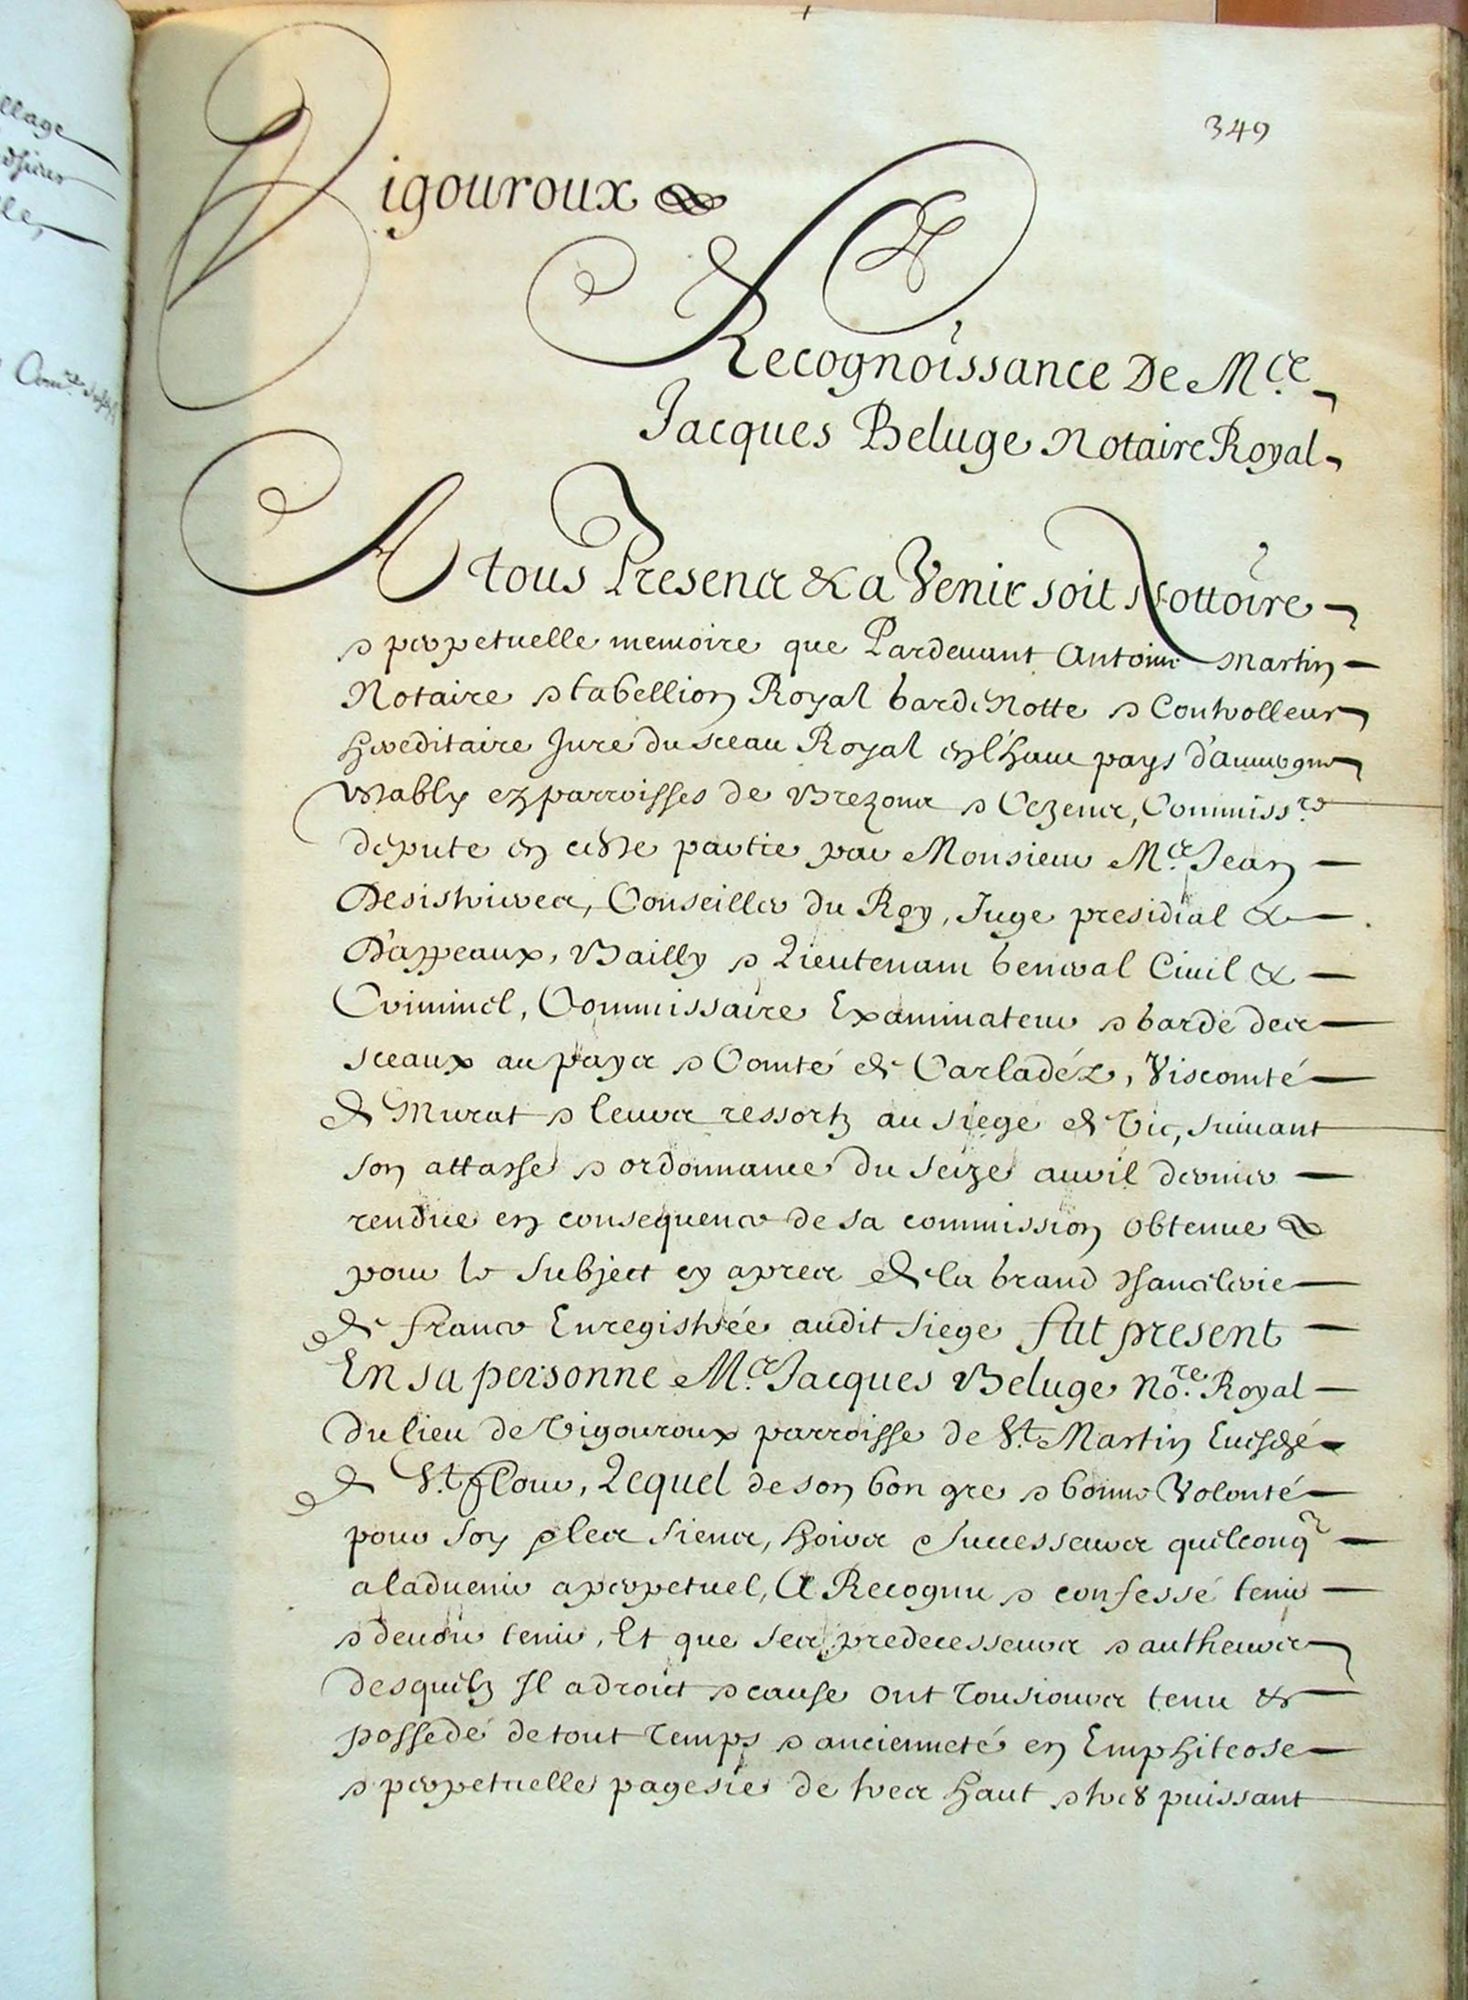 llage
349
Vigouroux
Recognoissance De M.re
Jacques Beluge Notaire Royal
A tous Presens & a Venir soit Nottoire
& perpetuelle memoire que Pardeuant Antoine Martin
Notaire & tabellion Royal Garde Notte & Controlleur
hereditaire Jure du sceau Royal en l'haut pays d'auuergne
estably ez parroisses de Brezons & Cezens, Commiss.re
depute en ceste partie par Monsieur M.re Jean
Desistrieres, Conseiller du Roy, Juge presidial &
D'appeaux, Bailly & Lieutenant General Ciuil &
Criminel, Commissaire Examinateur & Garde des
sceaux au pays & Comté de Carladéz, Viscomté
de Murat & leurs ressortz au siege de Vic, suiuant
son attasse & ordonnance du seize auril dernier
rendue en consequence de sa commission obtenue
pour le subject cy apres de la Grand Chancelerie
de france Enregistrée audit siege fut present
En sa personne M.re Jacques Beluge no.re Royal
du lieu de Vigouroux parroisse de S.t Martin Euesché
de S.t flour, Lequel de son bon gre & bonne Volonté
pour soy & les siens, hoirs & successeurs quelconq
a laduenir a perpetuel, A Recognu & confessé tenir
& deuoir tenir, Et que ses predecesseurs & autheurs
desquelz Il a droit & cause ont tousiours tenu &
possedé de tout temps & ancienneté en Emphiteose
& perpetuelle pagesie de tres haut & tres puissant